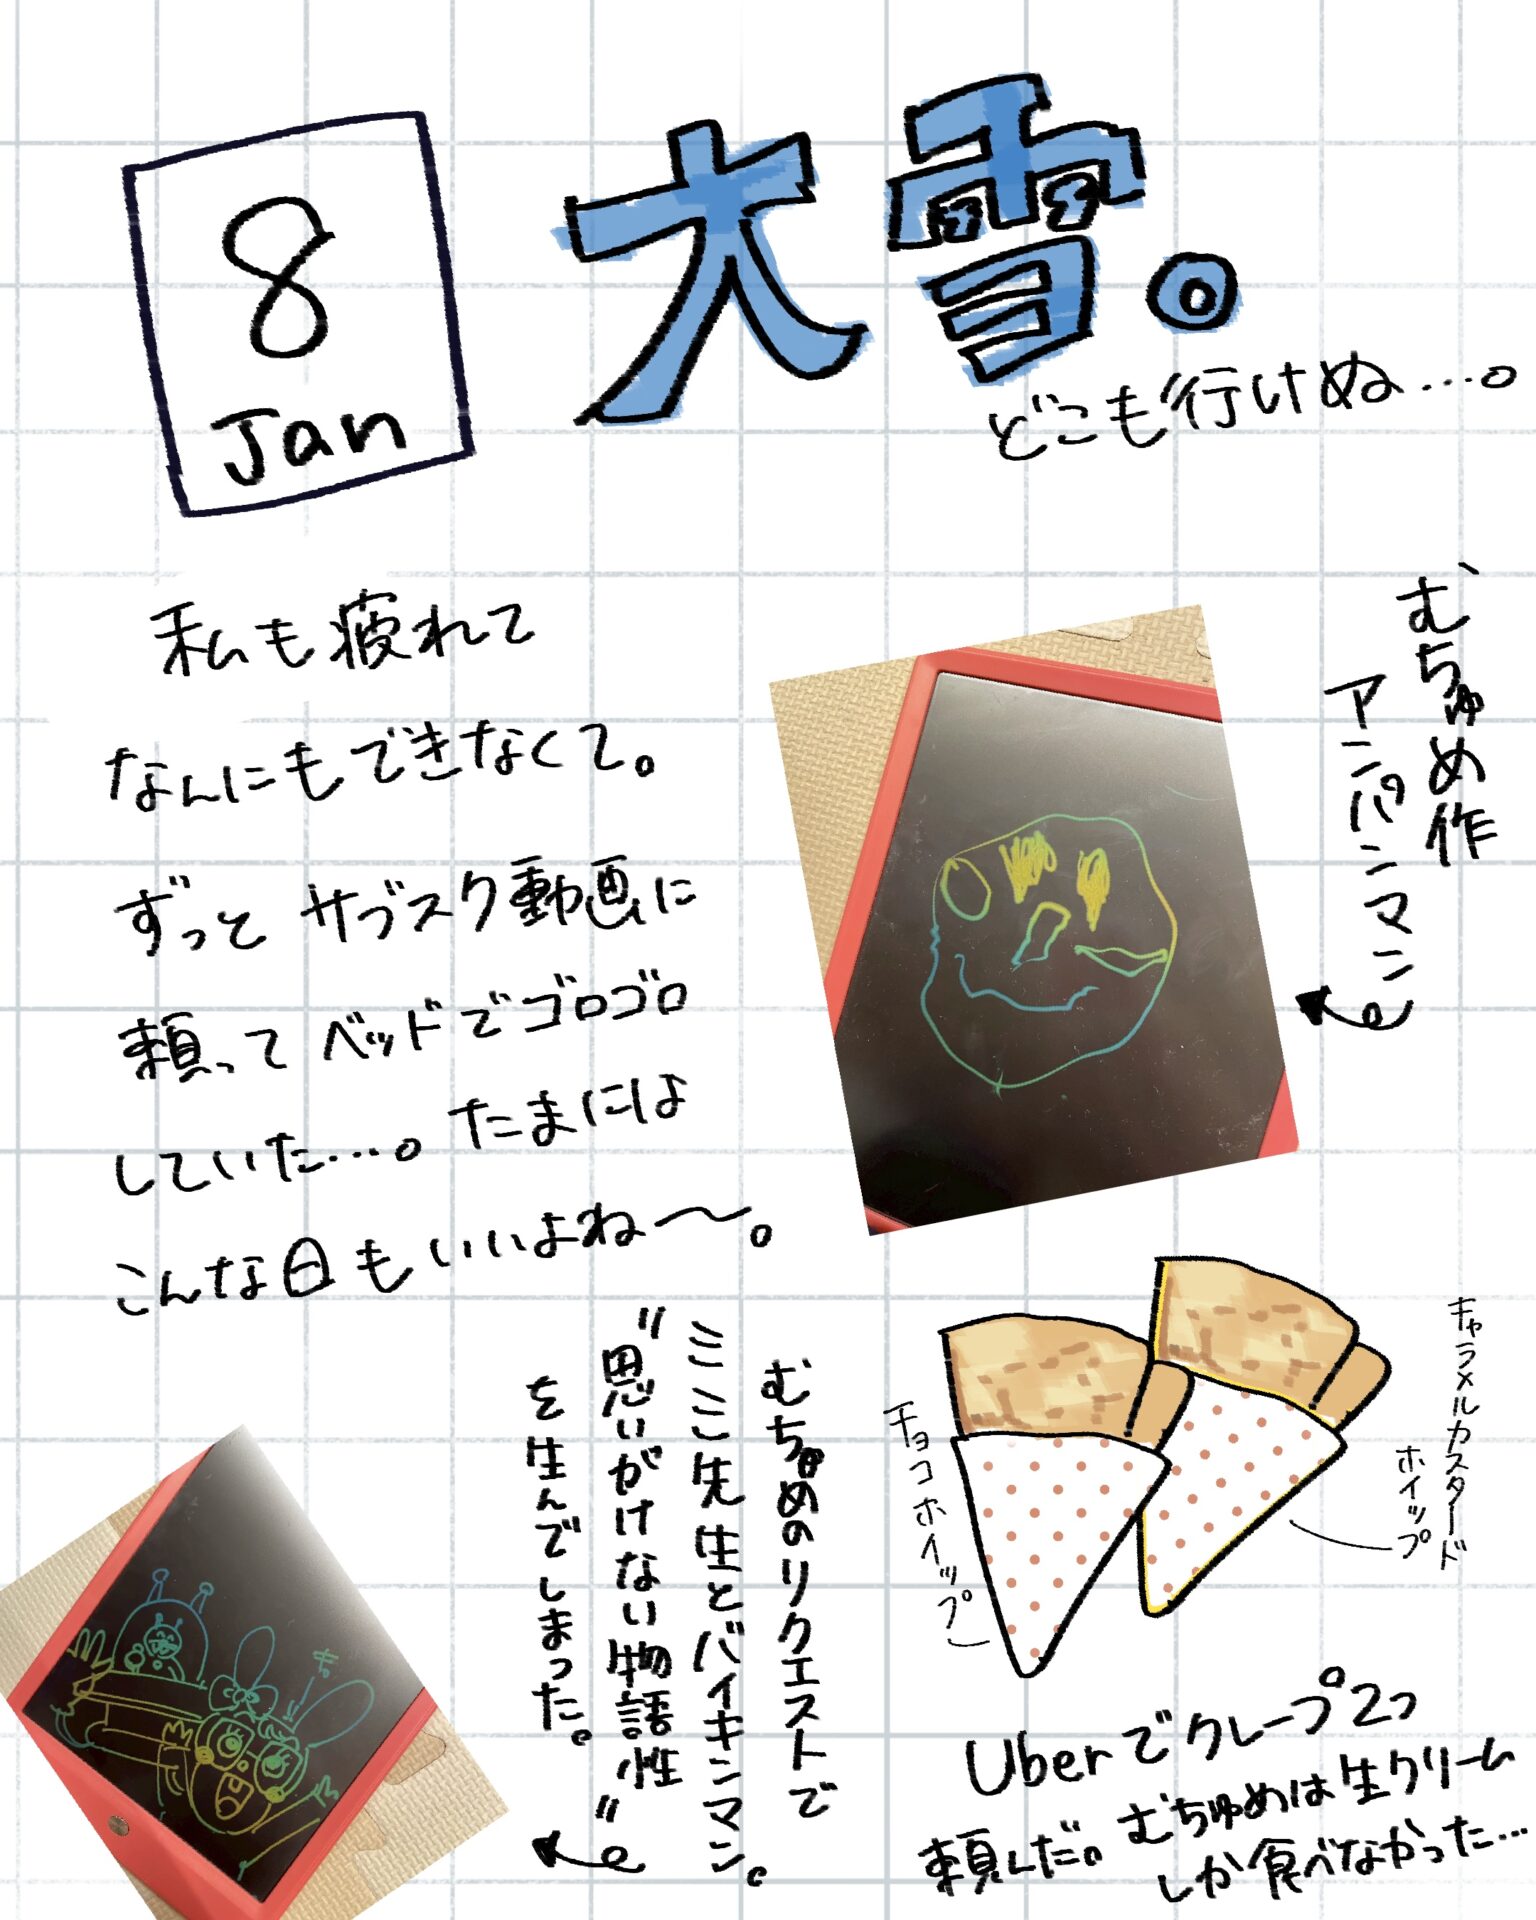 8
Jan
大雪。
どこも行けぬ…。
私も疲れて
なんにもできなくて。
ずっとサブスク動画に
頼ってベッドでゴロゴロ
していた…。たまには
こんな日もいいよね〜。
むちゅめ作
アンパンマン
むちゅめのリクエストで
ミミ先生とバイキンマン。
"思いがけない物語性"
を生んでしまった。
チョコホイップ
キャラメルカスタード
ホイップ
Uberでクレープ2つ
頼んだ。むちゅめは生クリーム
しか食べなかった…